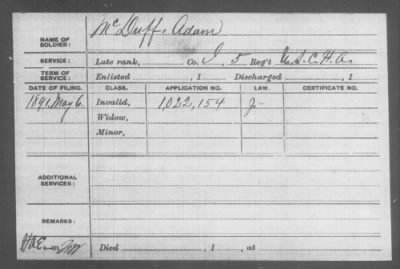 NAME OF SOLDIER: McDuff, Adam
SERVICE: Late rank, Co. I, 5 Reg't U.S.C.H.A.
TERM OF SERVICE: Enlisted , 1 Discharged , 1
DATE OF FILING. CLASS. APPLICATION NO. LAW. CERTIFICATE NO.
1891, May 6. Invalid, 1,022,154
Widow,
Minor,
ADDITIONAL SERVICES:
REMARKS:
Died , 1 , at